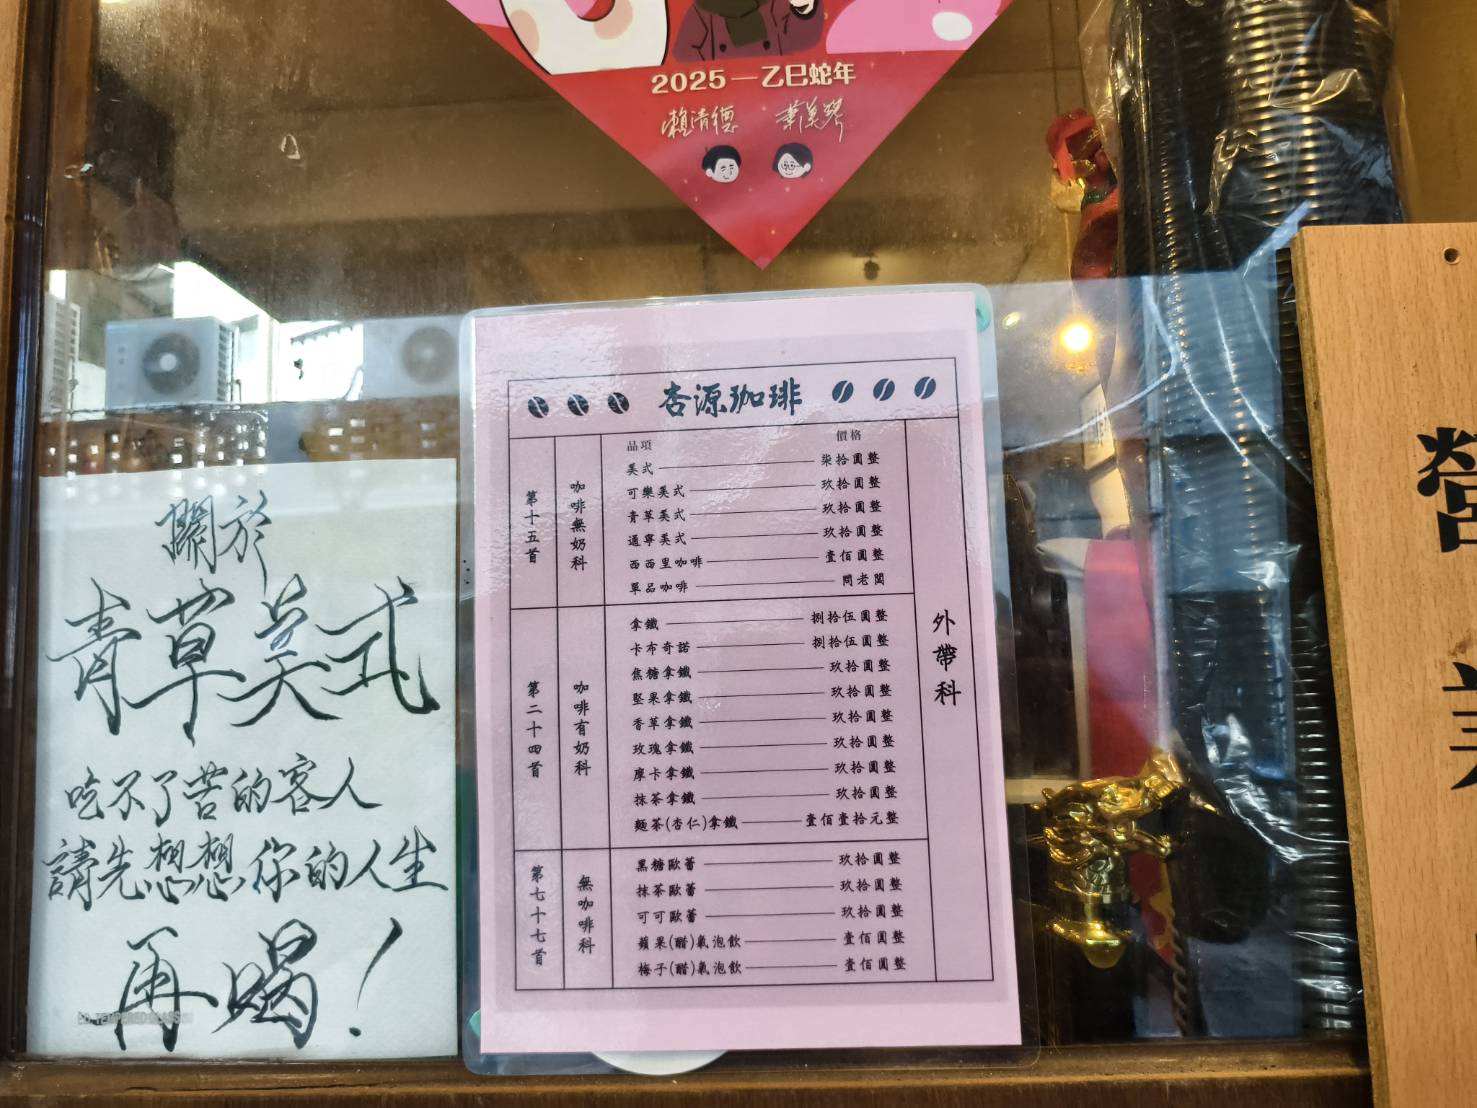 2025—乙巳蛇年
賴清德 蕭美琴
關於
青草美式
吃不了苦的客人
請先想想你的人生
再喝！
LD TEMPERED GLASS
杏源珈琲
品項 價格
第十五首
咖啡無奶科
美式 柒拾圓整
可樂美式 玖拾圓整
青草美式 玖拾圓整
通寧美式 玖拾圓整
西西里咖啡 壹佰圓整
單品咖啡 問老闆
第二十四首
咖啡有奶科
拿鐵 捌拾伍圓整
卡布奇諾 捌拾伍圓整
焦糖拿鐵 玖拾圓整
堅果拿鐵 玖拾圓整
香草拿鐵 玖拾圓整
玫瑰拿鐵 玖拾圓整
摩卡拿鐵 玖拾圓整
抹茶拿鐵 玖拾圓整
麵茶(杏仁)拿鐵 壹佰壹拾元整
第七十七首
無咖啡科
黑糖歐蕾 玖拾圓整
抹茶歐蕾 玖拾圓整
可可歐蕾 玖拾圓整
蘋果(醋)氣泡飲 壹佰圓整
梅子(醋)氣泡飲 壹佰圓整
外帶科
營
業